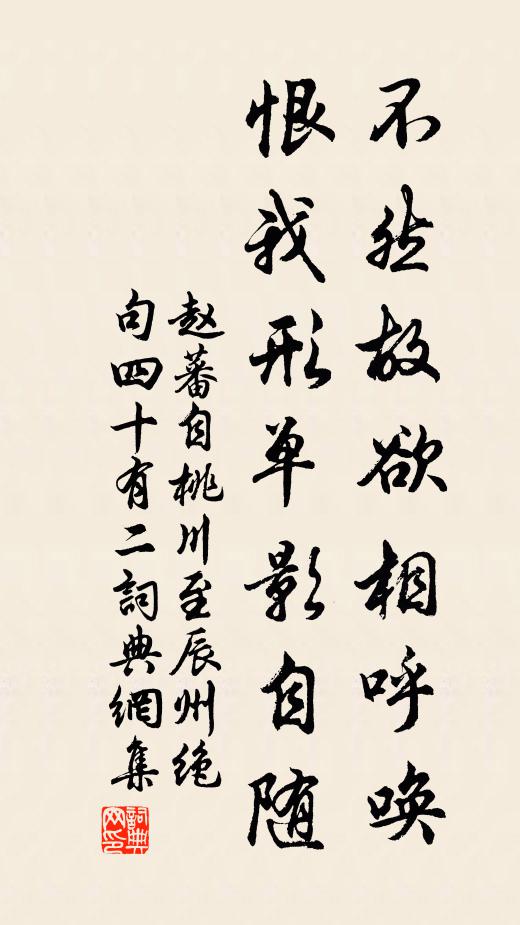 不然故欲相呼唤
恨我形单影自随
赵蕃自桃川至辰州绝
句四十有二詞典網集
詞典網印